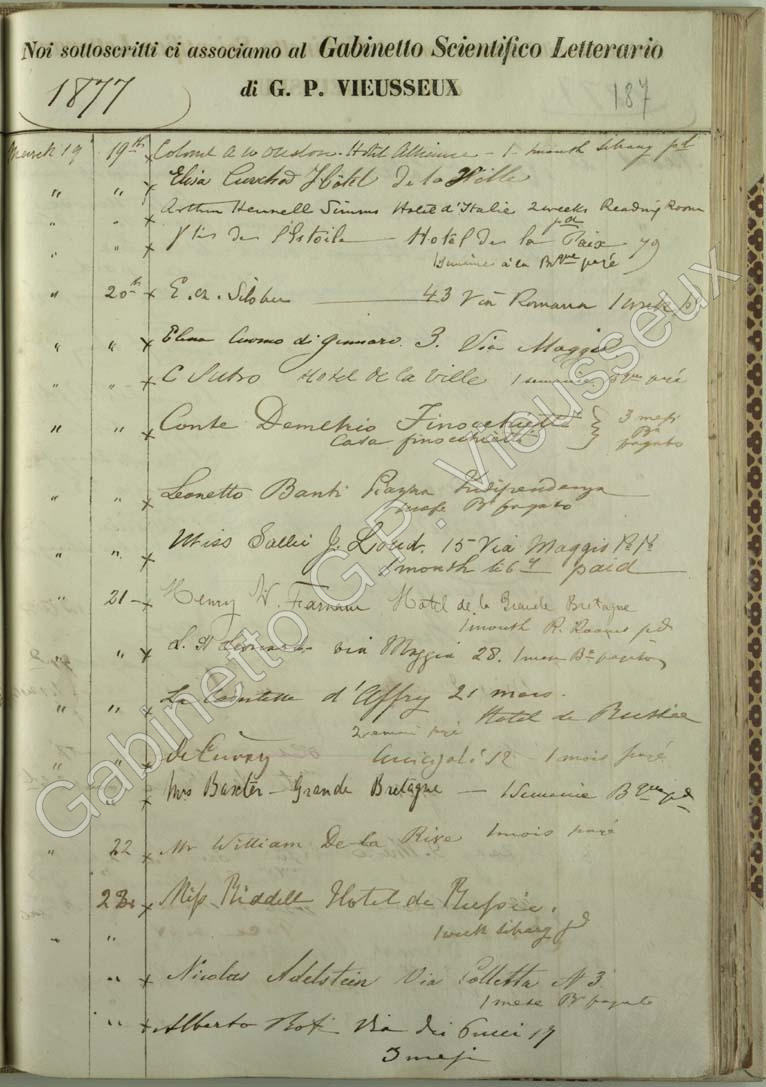 Noi sottoscritti ci associamo al Gabinetto Scientifico Letterario
di G. P. VIEUSSEUX
1877
187
March 19 19th Colonel Hotel Alliance - 1 month library pd
" " Elisa Hôtel de la Ville
" " Arthur Hennell Simms Hotel d'Italie 2 weeks Reading Room
pd
" " de l'Estoile Hotel de la Paix
1 semaine à la Bque payé
" 20th E. 43 Via Romana 1 week
" " Elena Cuomo di Gennaro. 3. Via Maggio
" " C Sutro Hotel de la Ville 1 semaine Bque payé
" " Conte Demetrio Finocchietti 3 mesi
Casa Finocchietti Ba pagato
" " Leonetto Banti Piazza Indipendenza
1 mese Ba pagato
" " Miss Sallie J. Loud. 15 Via Maggio
1 month paid
" 21 - Henry W. Farnam Hotel de la Grande Bretagne
1 month R. Rooms pd
" " L. via Maggio 28. 1 mese Ba pagato
" " La Comtesse d'Affry 21 mars.
Hotel de Russie
2 semaines payé
" " 1 mois payé
" " Mrs Baxter - Grande Bretagne - 1 Semaine Bque pd
" 22 Mr William De la Rive 1 mois payé
23 Miss Riddell Hotel de Russie.
" 1 week library pd
" Nicolas Adelstein Via Colletta N 3
1 mese Ba pagato
" Alberto Roti Via dei Pucci 17
3 mesi
Gabinetto G.P. Vieusseux